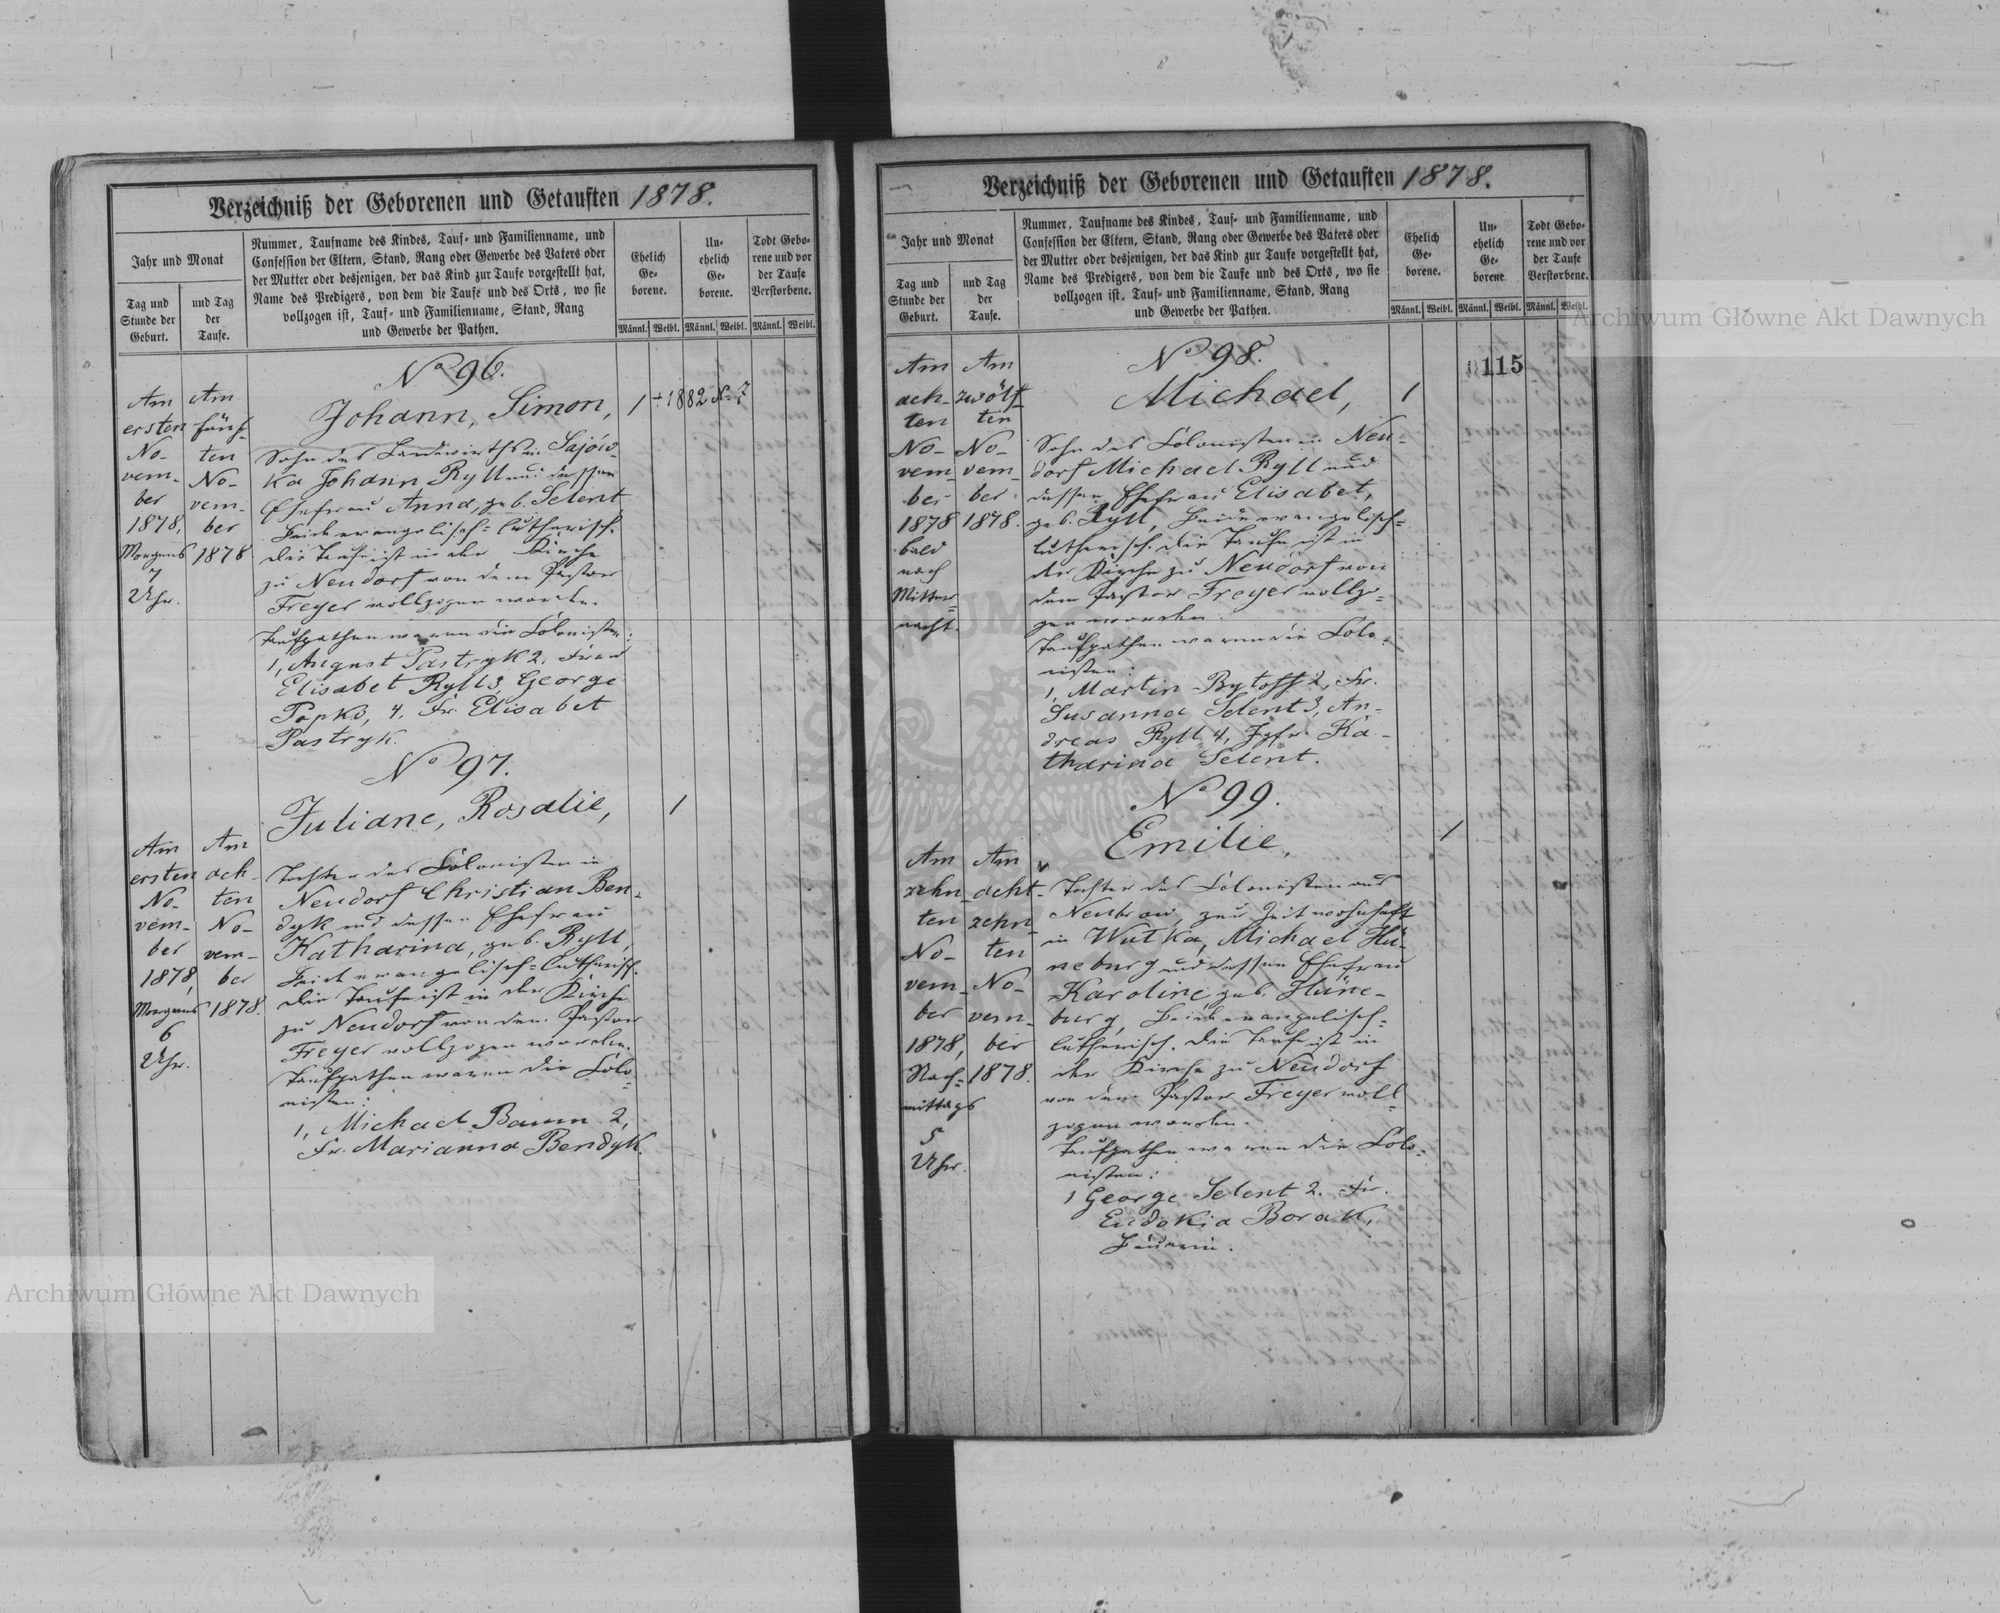 Verzeichniß der Geborenen und Getauften 1878.
Jahr und Monat
Tag und
Stunde der
Geburt.
und Tag
der
Taufe.
Nummer, Taufname des Kindes, Tauf- und Familienname, und
Confession der Eltern, Stand, Rang oder Gewerbe des Vaters oder
der Mutter oder desjenigen, der das Kind zur Taufe vorgestellt hat,
Name des Predigers, von dem die Taufe und des Orts, wo sie
vollzogen ist, Tauf- und Familienname, Stand, Rang
und Gewerbe der Pathen.
Ehelich
Ge-
borene.
Un-
ehelich
Ge-
borene.
Todt Gebo-
rene und vor
der Taufe
Verstorbene.
Männl. Weibl. Männl. Weibl. Männl. Weibl.
Am
ersten
No-
vem-
ber
1878,
Morgens
7
Uhr.
Am
fünf-
ten
No-
vem-
ber
1878
No 96.
Johann, Simon,
1 + 1882 No 7
Sohn des Landwirths in Sajów-
ka Johann Ryll und dessen
Ehefrau Anna, geb. Selent,
Beide evangelisch-lutherisch.
Die Taufe ist in der Kirche
zu Neudorf von dem Pastor
Freyer vollzogen worden.
Taufpathen waren die Colonisten:
1, August Pastryk 2. Frau
Elisabet Ryll 3, George
Popko, 4. Fr. Elisabet
Pastryk.
No 97.
Juliane, Rosalie,
1
Am
ersten
No-
vem-
ber
1878,
Morgens
6
Uhr.
Am
ach-
ten
No-
vem-
ber
1878.
Tochter des Colonisten in
Neudorf Christian Ben-
dyk und dessen Ehefrau
Katharina, geb. Ryll,
Beide evangelisch-lutherisch.
Die Taufe ist in der Kirche
zu Neudorf von dem Pastor
Freyer vollzogen worden.
Taufpathen waren die Colo-
nisten:
1, Michael Baum 2,
Fr. Marianna Bendyk.
Verzeichniß der Geborenen und Getauften 1878.
Jahr und Monat
Tag und
Stunde der
Geburt.
und Tag
der
Taufe.
Nummer, Taufname des Kindes, Tauf- und Familienname, und
Confession der Eltern, Stand, Rang oder Gewerbe des Vaters oder
der Mutter oder desjenigen, der das Kind zur Taufe vorgestellt hat,
Name des Predigers, von dem die Taufe und des Orts, wo sie
vollzogen ist, Tauf- und Familienname, Stand, Rang
und Gewerbe der Pathen.
Ehelich
Ge-
borene.
Un-
ehelich
Ge-
borene.
Todt Gebo-
rene und vor
der Taufe
Verstorbene.
Männl. Weibl. Männl. Weibl. Männl. Weibl.
115
Am
ach-
ten
No-
vem-
ber
1878
bald
nach
Mitter-
nacht.
Am
zwölf-
ten
No-
vem-
ber
1878.
No 98.
Michael,
1
Sohn des Colonisten in Neu-
dorf Michael Ryll und
dessen Ehefrau Elisabet,
geb. Ryll, Beide evangelisch-
lutherisch. Die Taufe ist in
der Kirche zu Neudorf von
dem Pastor Freyer vollzo-
gen worden.
Taufpathen waren die Colo-
nisten:
1, Martin Bytoff 2, Fr.
Susanna Selent 3, An-
dreas Ryll 4, Jgfr. Ka-
tharina Selent.
No 99.
Emilie,
1
Am
zehn-
ten
No-
vem-
ber
1878,
Nach-
mittags
5
Uhr.
Am
acht-
zehn-
ten
No-
vem-
ber
1878.
Tochter des Colonisten aus
Neubrow, zur Zeit wohnhaft
in Wulka, Michael Hü-
neburg und dessen Ehefrau
Karoline, geb. Hüne-
burg, Beide evangelisch-
lutherisch. Die Taufe ist in
der Kirche zu Neudorf
von dem Pastor Freyer voll-
zogen worden.
Taufpathen waren die Colo-
nisten:
1 George Selent 2. Fr.
Eudokia Borak,
Bäuerin.
Archiwum Główne Akt Dawnych
Archiwum Główne Akt Dawnych